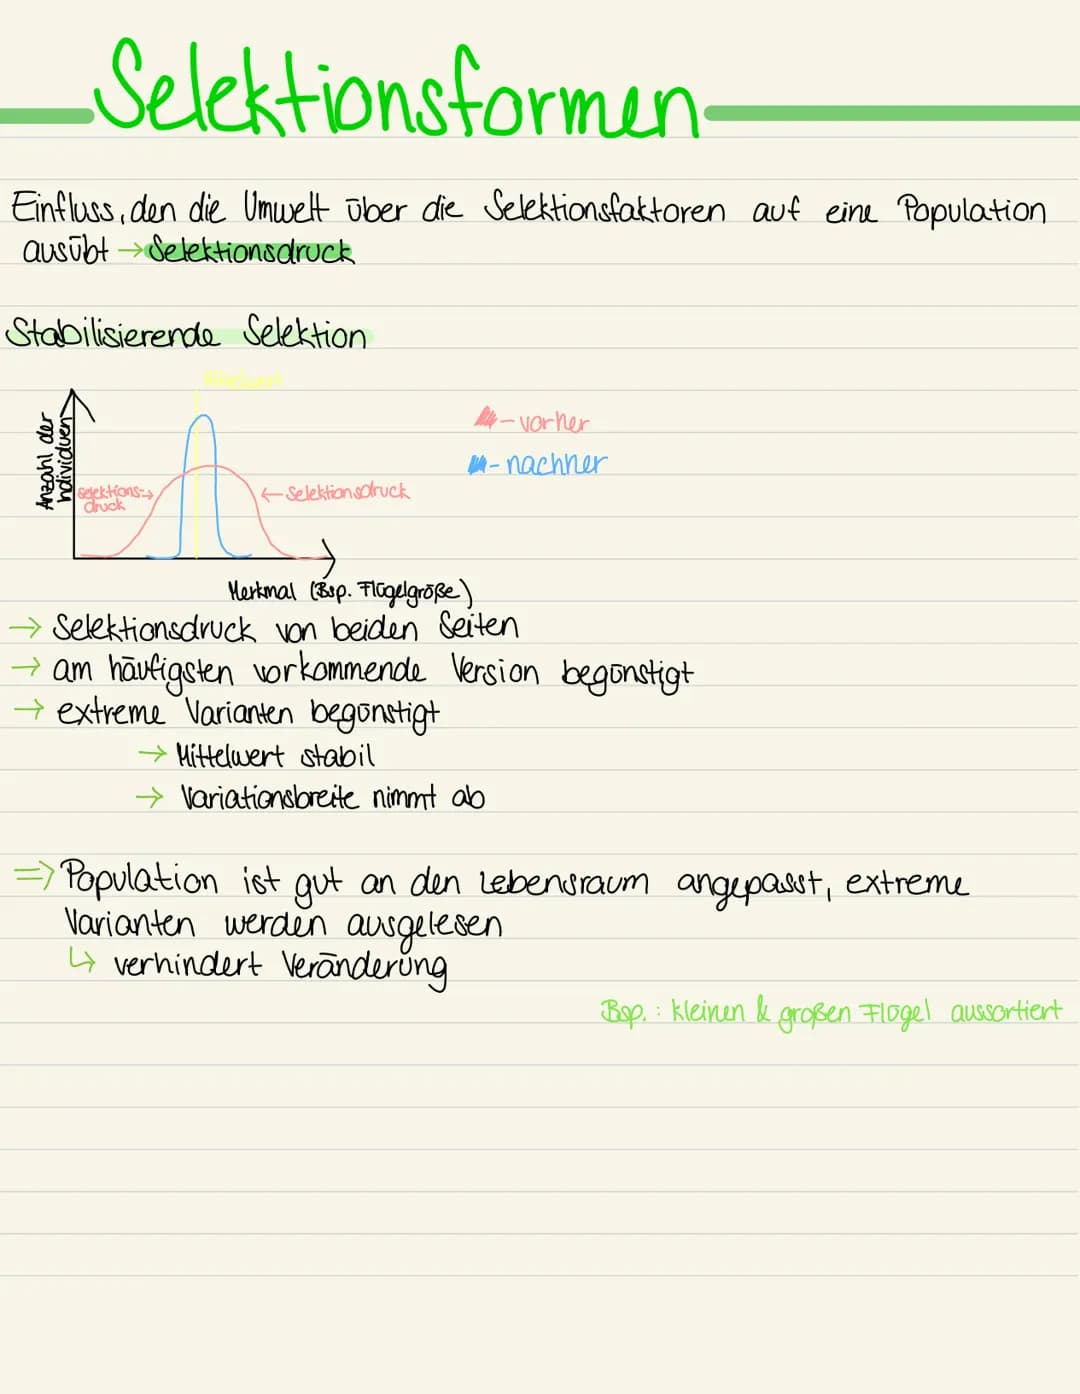 Selektionsformen
Einfluss, den die Umwelt über die Selektionsfaktoren auf eine Population
ausübt → Selektionsdruck
Stabilisierende Selektion
Mittelwert
Anzahl der
Individuen
Selektions-→
druck
← Selektionsdruck
- vorher
- nachher
Merkmal (Bsp. Flügelgröße)
→ Selektionsdruck von beiden Seiten
→ am häufigsten vorkommende Version begünstigt
→ extreme Varianten begünstigt
→ Mittelwert stabil
→ Variationsbreite nimmt ab
=> Population ist gut an den Lebensraum angepasst, extreme
Varianten werden ausgelesen
↳ verhindert Veränderung
Bsp.: kleinen & großen Flügel aussortiert